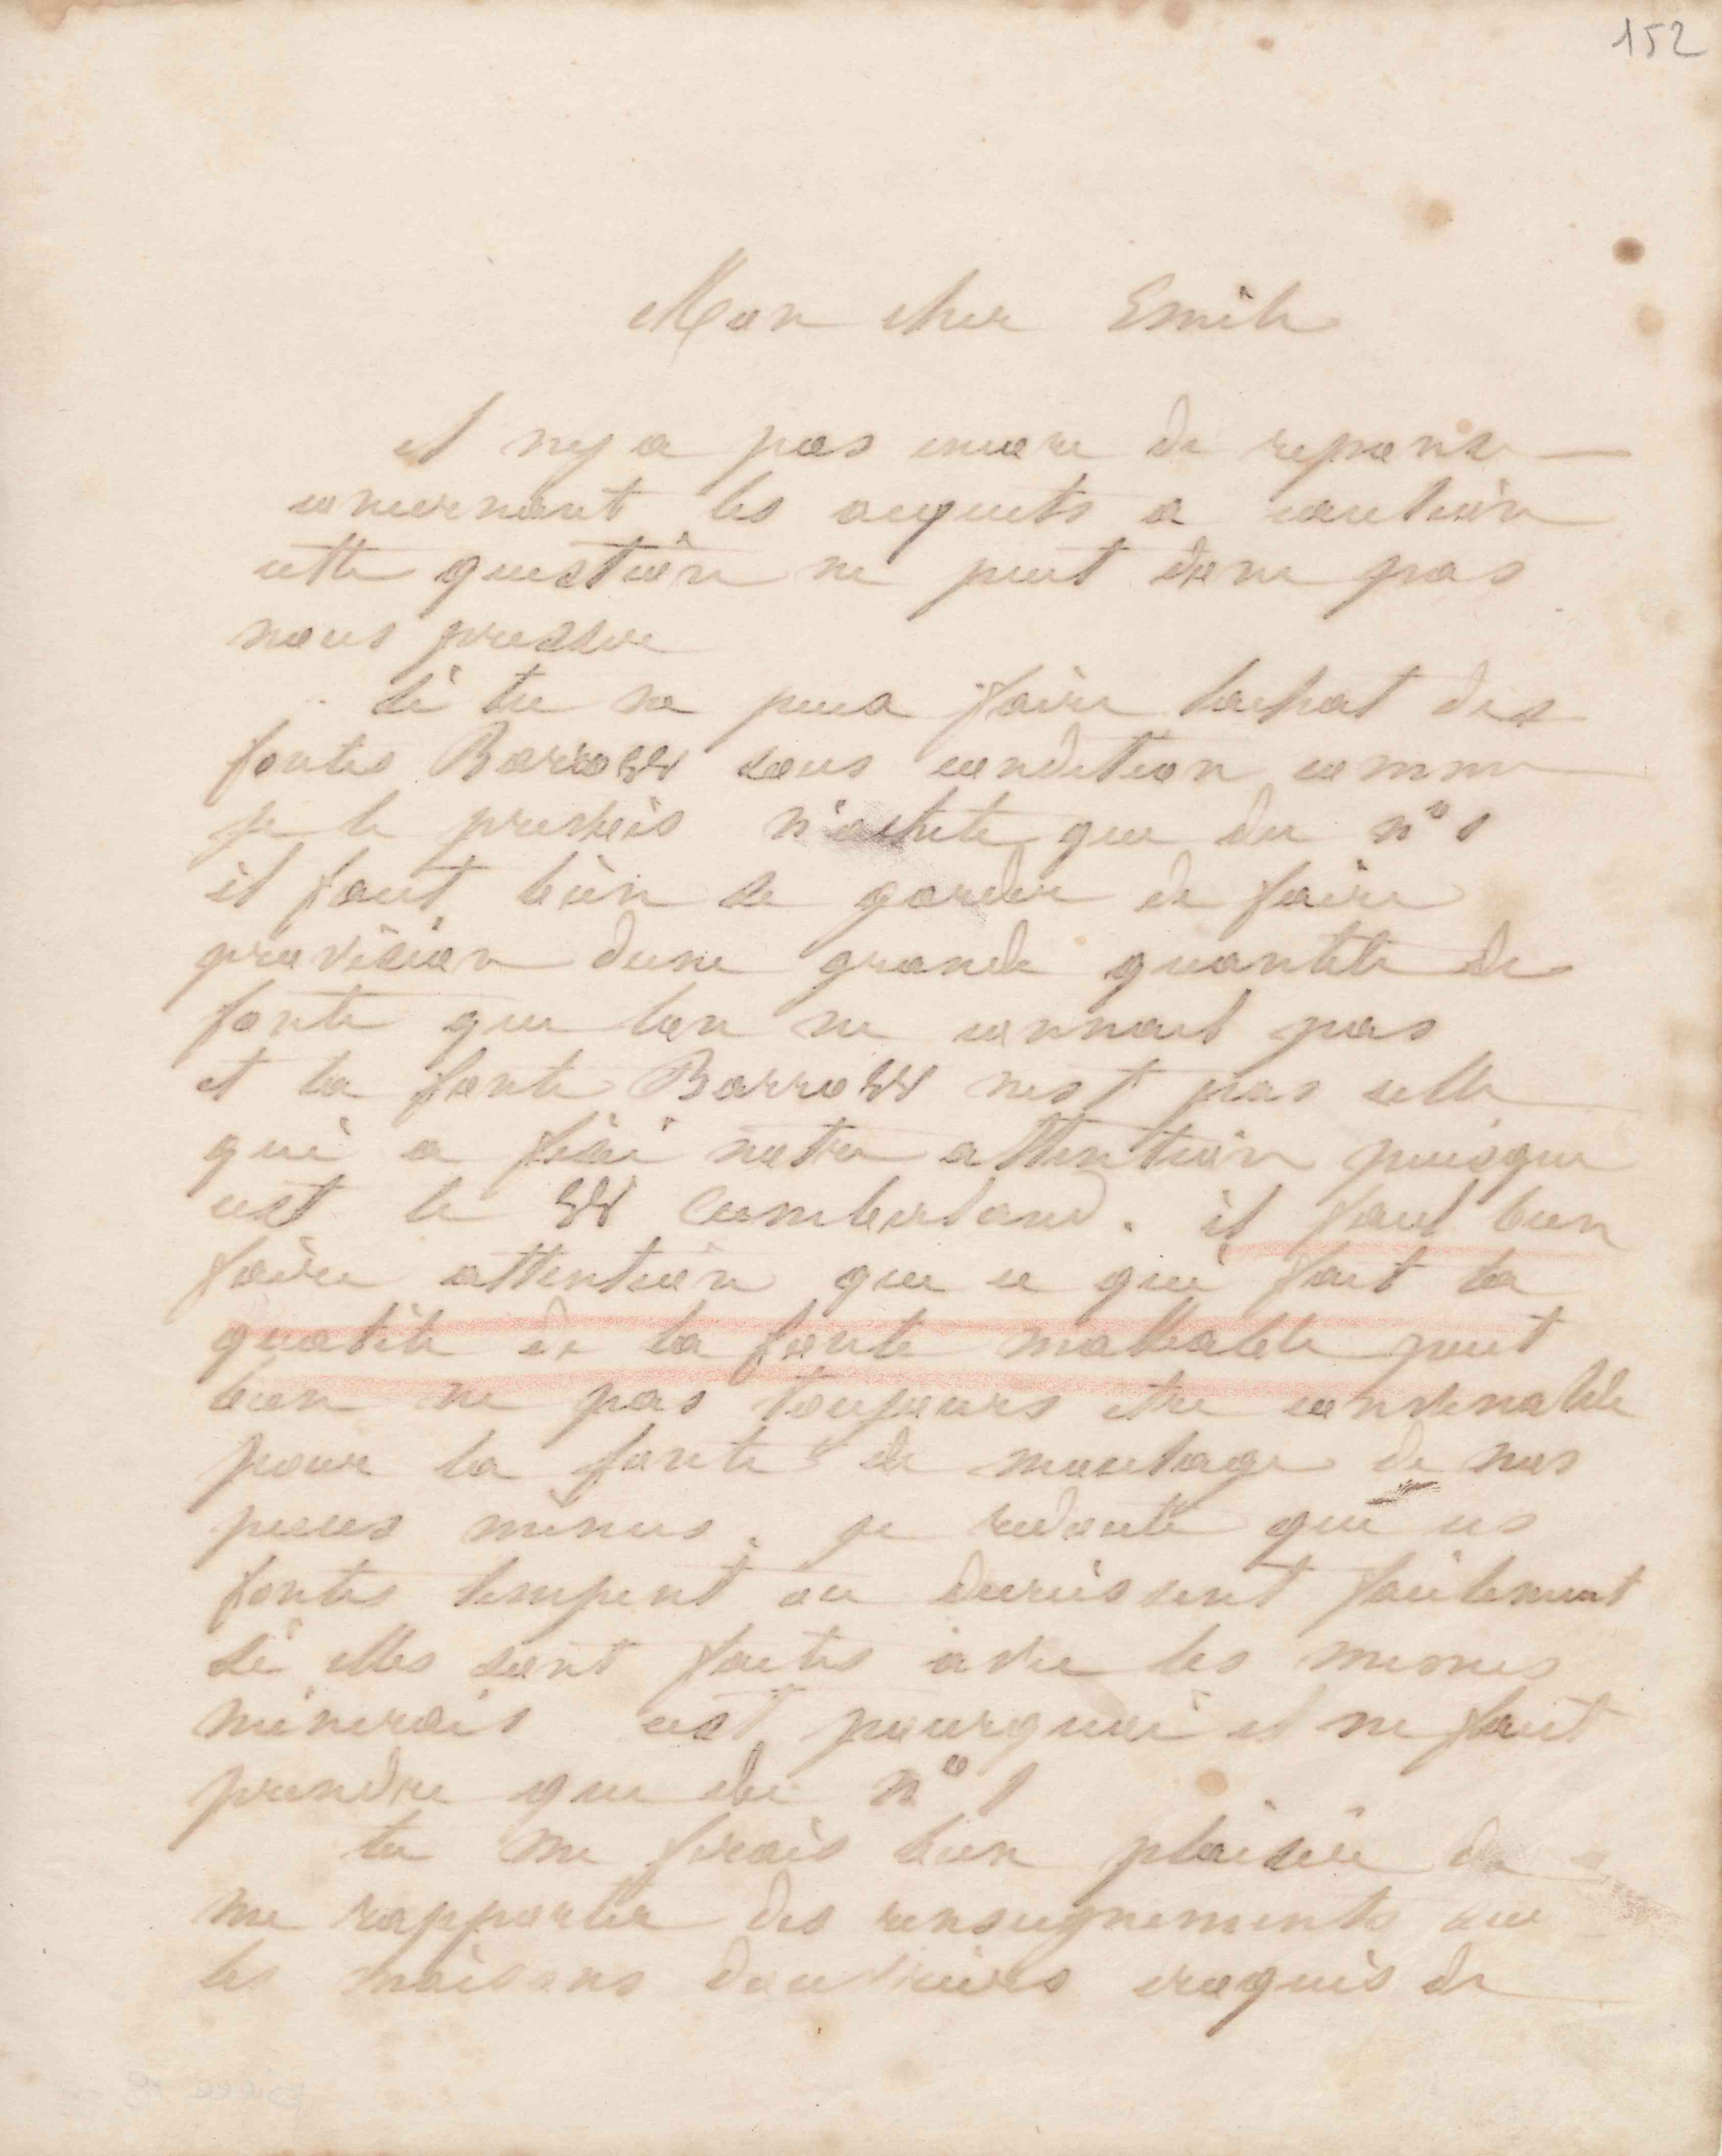 152
Mon cher Emile
il ny a pas encore de reponse
concernant les acquits a caution
cette question ne peut donc pas
nous presser
si tu ne peux faire lachat des
fontes Barrow sous condition comme
je le prevoiis n'achete que du n° 1
il faut bien se garder de faire
provision dune grande quantite de
fonte que lon ne connait pas
et la fonte Barrow nest pas celle
qui a fixé notre attention puisque
cest le W Cumberland. il faut bien
faire attention que ce qui fait la
qualite de la fonte malleable peut
bien ne pas toujours etre convenable
pour la fonte de moulage de nos
pieces minces. je redoute que ces
fontes trempent ou durcissent facilement
si elles sont faites avec les memes
minerais cest pourquoi il ne faut
prendre que du n° 1
tu me ferais bien plaisir de
me rapporter des renseignements sur
les maisons douvriers croquis de